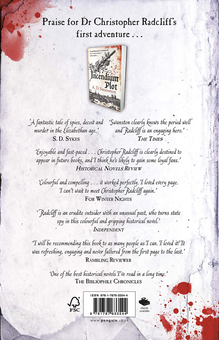 Praise for Dr Christopher Radcliff's
first adventure . . .
Incendium
Plot
'A fantastic tale of spies, deceit and
murder in the Elizabethan age.'
S. D. SYKES
'Swanston clearly knows the period well
and Radcliff is an engaging hero.'
THE TIMES
'Enjoyable and fast-paced . . . Christopher Radcliff is clearly destined to
appear in future books, and I think he's likely to gain some loyal fans.'
HISTORICAL NOVELS REVIEW
'Colourful and compelling . . . it worked perfectly. I loved every page.
I can't wait to meet Christopher Radcliff again.'
FOR WINTER NIGHTS
'Radcliff is an erudite outsider with an unusual past, who turns state
spy in this colourful and gripping historical novel.'
INDEPENDENT
'I will be recommending this book to as many people as I can. I loved it! It was
refreshing, engaging and never faltered from the first page to the last.'
RAMBLING REVIEWER
'One of the best historical novels I've read in a long time.'
THE BIBLIOPHILE CHRONICLES
FSC
www.penguin.co.uk